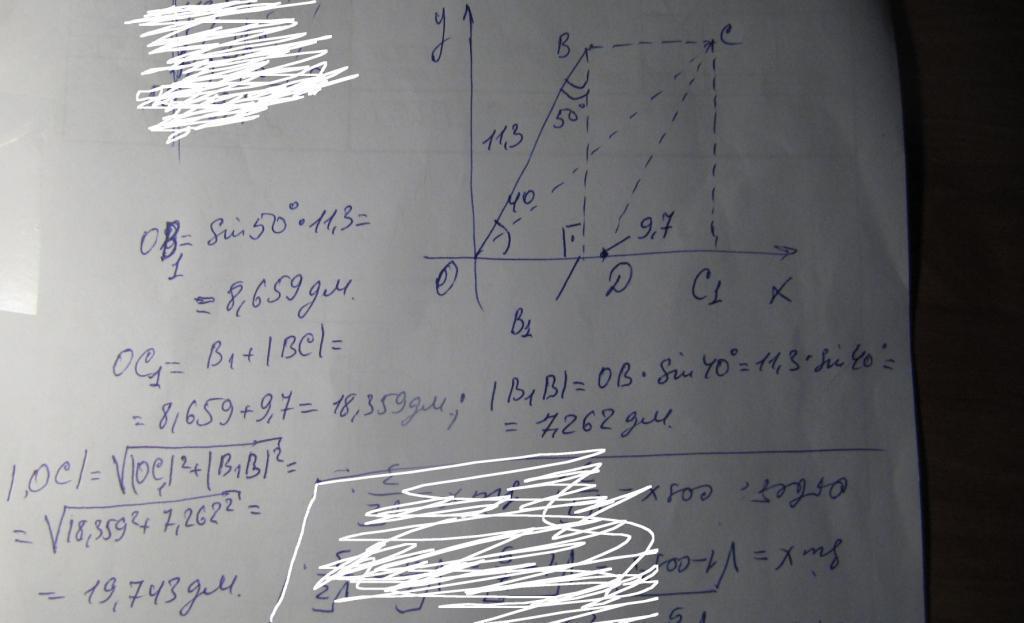 y
B
C
50°
11,3
40
9,7
O
D
C1
x
B1
OB1 = Sin50°·11,3=
= 8,659 дм.
OC1 = B1 + |BC| =
= 8,659 + 9,7 = 18,359 дм;
|B1B| = OB · Sin 40° = 11,3 · Sin 40° =
= 7,262 дм.
|OC| = √|OC1|² + |B1B|² =
= √18,359² + 7,262² =
= 19,743 дм.
Ответ: cosx =
sin x = √1-cos